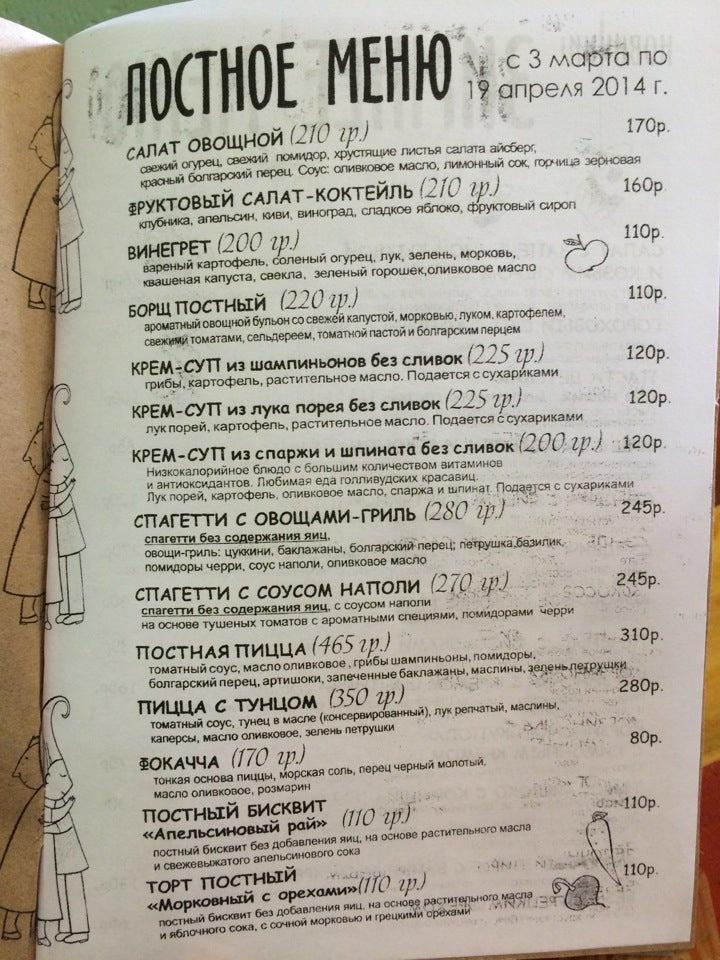 ПОСТНОЕ МЕНЮ
с 3 марта по
19 апреля 2014 г.
САЛАТ ОВОЩНОЙ (210 гр.) 170р.
свежий огурец, свежий помидор, хрустящие листья салата айсберг,
красный болгарский перец. Соус: оливковое масло, лимонный сок, горчица зерновая
ФРУКТОВЫЙ САЛАТ-КОКТЕЙЛЬ (210 гр.) 160р.
клубника, апельсин, киви, виноград, сладкое яблоко, фруктовый сироп
ВИНЕГРЕТ (200 гр.) 110р.
вареный картофель, соленый огурец, лук, зелень, морковь,
квашеная капуста, свекла, зеленый горошек,оливковое масло
БОРЩ ПОСТНЫЙ (220 гр.) 110р.
ароматный овощной бульон со свежей капустой, морковью, луком, картофелем,
свежими томатами, сельдереем, томатной пастой и болгарским перцем
КРЕМ-СУП из шампиньонов без сливок (225 гр.) 120р.
грибы, картофель, растительное масло. Подается с сухариками
КРЕМ-СУП из лука порея без сливок (225 гр.) 120р.
лук порей, картофель, растительное масло. Подается с сухариками
КРЕМ-СУП из спаржи и шпината без сливок (200 гр.) 120р.
Низкокалорийное блюдо с большим количеством витаминов
и антиоксидантов. Любимая еда голливудских красавиц.
Лук порей, картофель, оливковое масло, спаржа и шпинат. Подается с сухариками
СПАГЕТТИ С ОВОЩАМИ-ГРИЛЬ (280 гр.) 245р.
спагетти без содержания яиц,
овощи-гриль: цуккини, баклажаны, болгарский перец; петрушка,базилик,
помидоры черри, соус наполи, оливковое масло
СПАГЕТТИ С СОУСОМ НАПОЛИ (270 гр.) 245р.
спагетти без содержания яиц, с соусом наполи
на основе тушеных томатов с ароматными специями, помидорами черри
ПОСТНАЯ ПИЦЦА (465 гр.) 310р.
томатный соус, масло оливковое , грибы шампиньоны, помидоры,
болгарский перец, артишоки, запеченные баклажаны, маслины, зелень петрушки
ПИЦЦА С ТУНЦОМ (350 гр.) 280р.
томатный соус, тунец в масле (консервированный), лук репчатый, маслины,
каперсы, масло оливковое, зелень петрушки
ФОКАЧЧА (170 гр.) 80р.
тонкая основа пиццы, морская соль, перец черный молотый,
масло оливковое, розмарин
ПОСТНЫЙ БИСКВИТ
«Апельсиновый рай» (110 гр.) 110р.
постный бисквит без добавления яиц, на основе растительного масла
и свежевыжатого апельсинового сока
ТОРТ ПОСТНЫЙ
«Морковный с орехами»(110 гр.) 110р.
постный бисквит без добавления яиц, на основе растительного масла
и яблочного сока, с сочной морковью и грецкими орехами